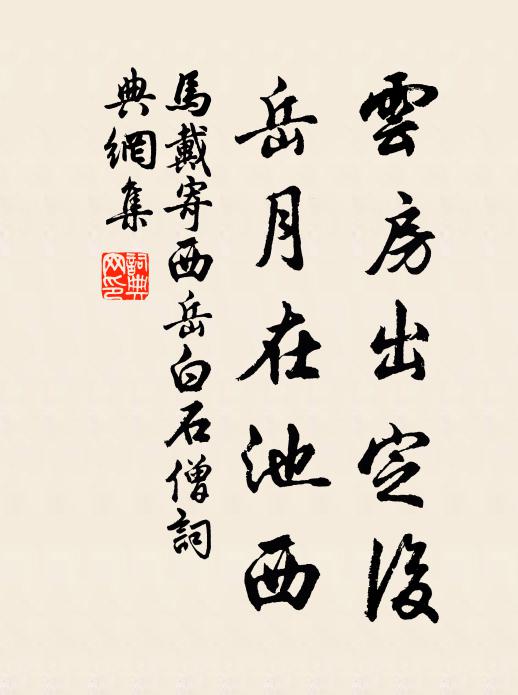 雲房出定後
岳月在池西
馬戴寄西岳白石僧詞
典網集
詞典網印